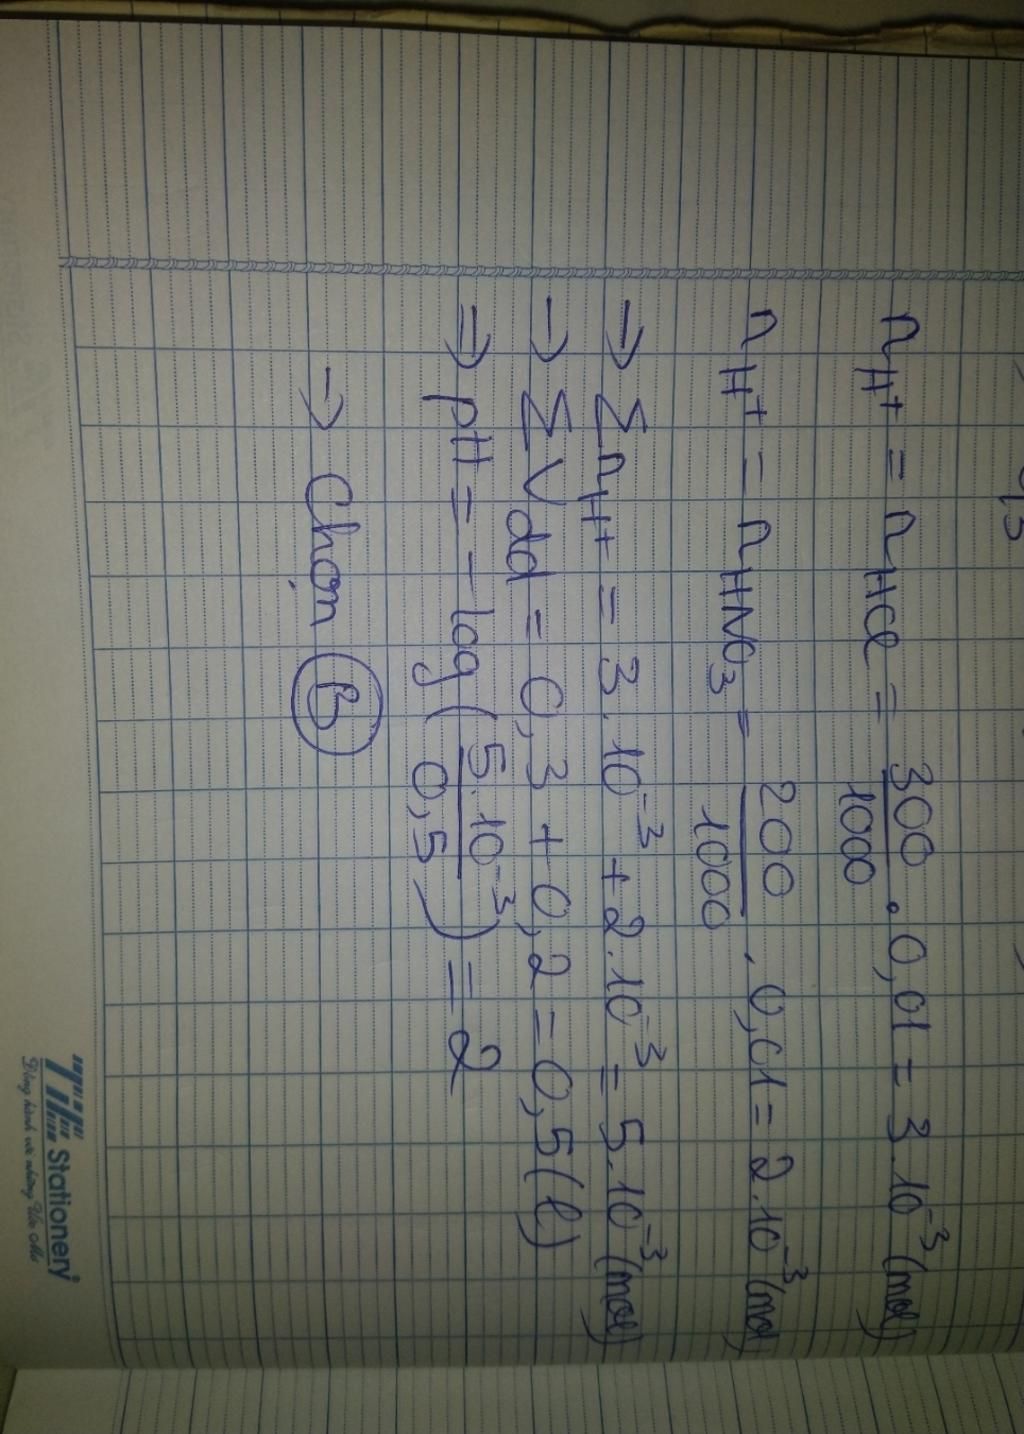 nH+ = nHCl = 300/1000 . 0,01 = 3.10^-3 (mol)
nH+ = nHNO3 = 200/1000 . 0,01 = 2.10^-3 (mol)
→ ΣnH+ = 3.10^-3 + 2.10^-3 = 5.10^-3 (mol)
→ ΣVdd = 0,3 + 0,2 = 0,5 (l)
⇒ pH = -log(5.10^-3/0,5) = 2
→ Chọn B
Stationery